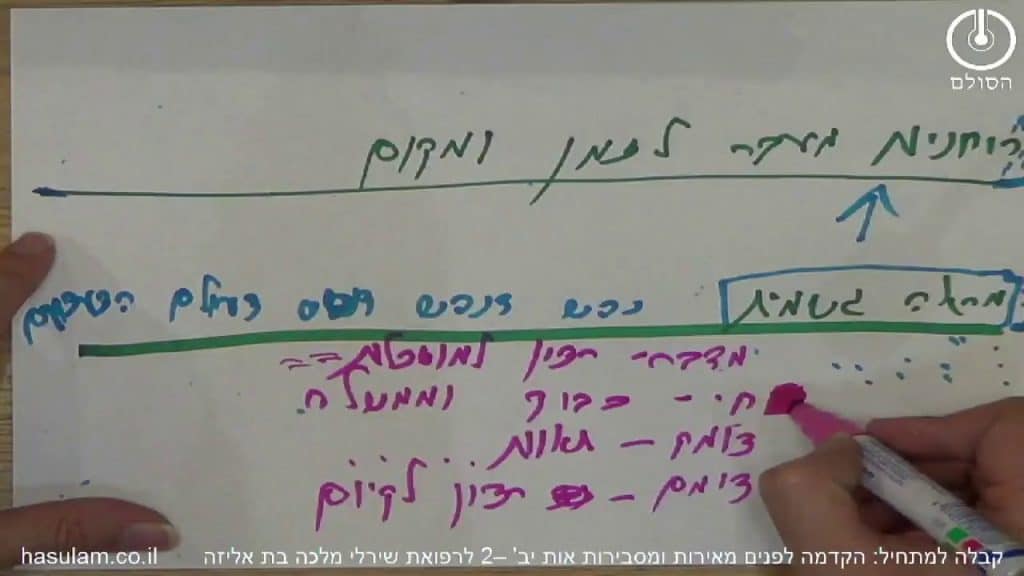 הסולם
רוחניות מעבר לזמן ומקום
מהלה גשמית נפש דנפש דעולם
מדבר - רצון למושכלות
חי - כבוד וממשלה
צומח - תאוות
דומם - רצון לקיום
קבלה למתחיל: הקדמה לפנים מאירות ומסבירות אות יב' –2 לרפואת שירלי מלכה בת אליזה hasulam.co.il